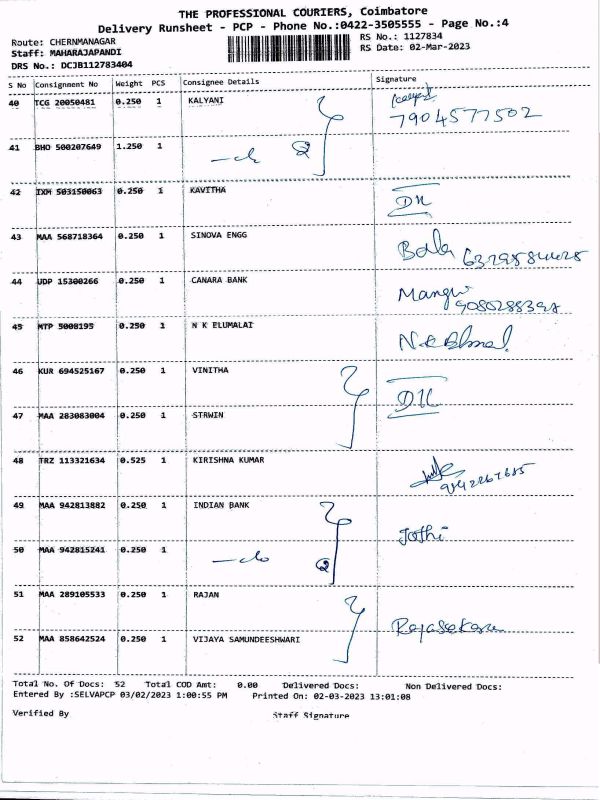 THE PROFESSIONAL COURIERS, Coimbatore
Delivery Runsheet - PCP - Phone No.:0422-3505555 - Page No.:4
Route: CHERNMANAGAR
RS No.: 1127834
Staff: MAHARAJAPANDI
RS Date: 02-Mar-2023
DRS No.: DCJB112783404
S No Consignment No Weight PCS Consignee Details Signature
40 TCG 20050481 0.250 1 KALYANI
7904577502
41 BHO 500207649 1.250 1
42 IXM 503150063 0.250 1 KAVITHA
43 MAA 568718364 0.250 1 SINOVA ENGG Bala
44 UDP 15300266 0.250 1 CANARA BANK
45 MTP 5008195 0.250 1 N K ELUMALAI
46 KUR 694525167 0.250 1 VINITHA
47 MAA 283083004 0.250 1 STRWIN
48 TRZ 113321634 0.525 1 KIRISHNA KUMAR
49 MAA 942813882 0.250 1 INDIAN BANK Jothi
50 MAA 942815241 0.250 1
51 MAA 289105533 0.250 1 RAJAN
52 MAA 858642524 0.250 1 VIJAYA SAMUNDEESHWARI
Total No. Of Docs: 52 Total COD Amt: 0.00 Delivered Docs: Non Delivered Docs:
Entered By :SELVAPCP 03/02/2023 1:00:55 PM Printed On: 02-03-2023 13:01:08
Verified By Staff Signature